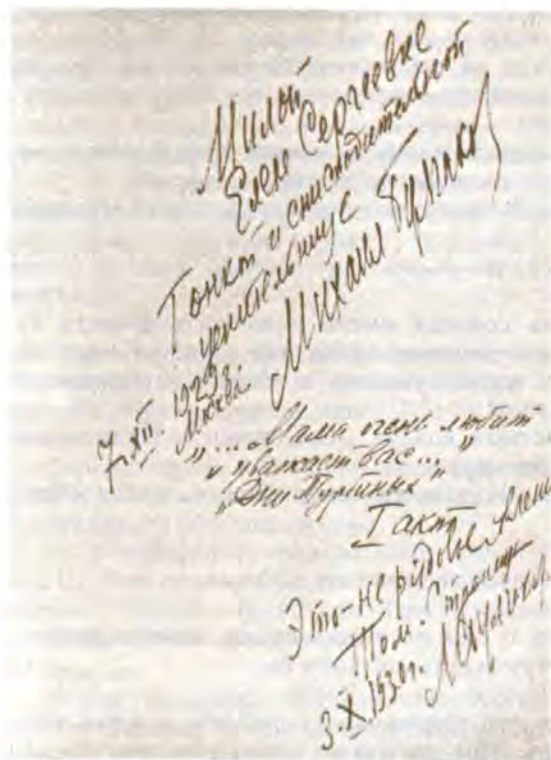 Милой
Елене Сергеевне
Тонкой и снисходительной
ценительнице
Михаил Булгаков
7.XII. 1929 г.
Москва.
"... Мама очень любит
и уважает вас..."
"Дни Турбиных"
I акт
Это – не рядовые
3.X.1930 г.
М. Булгаков